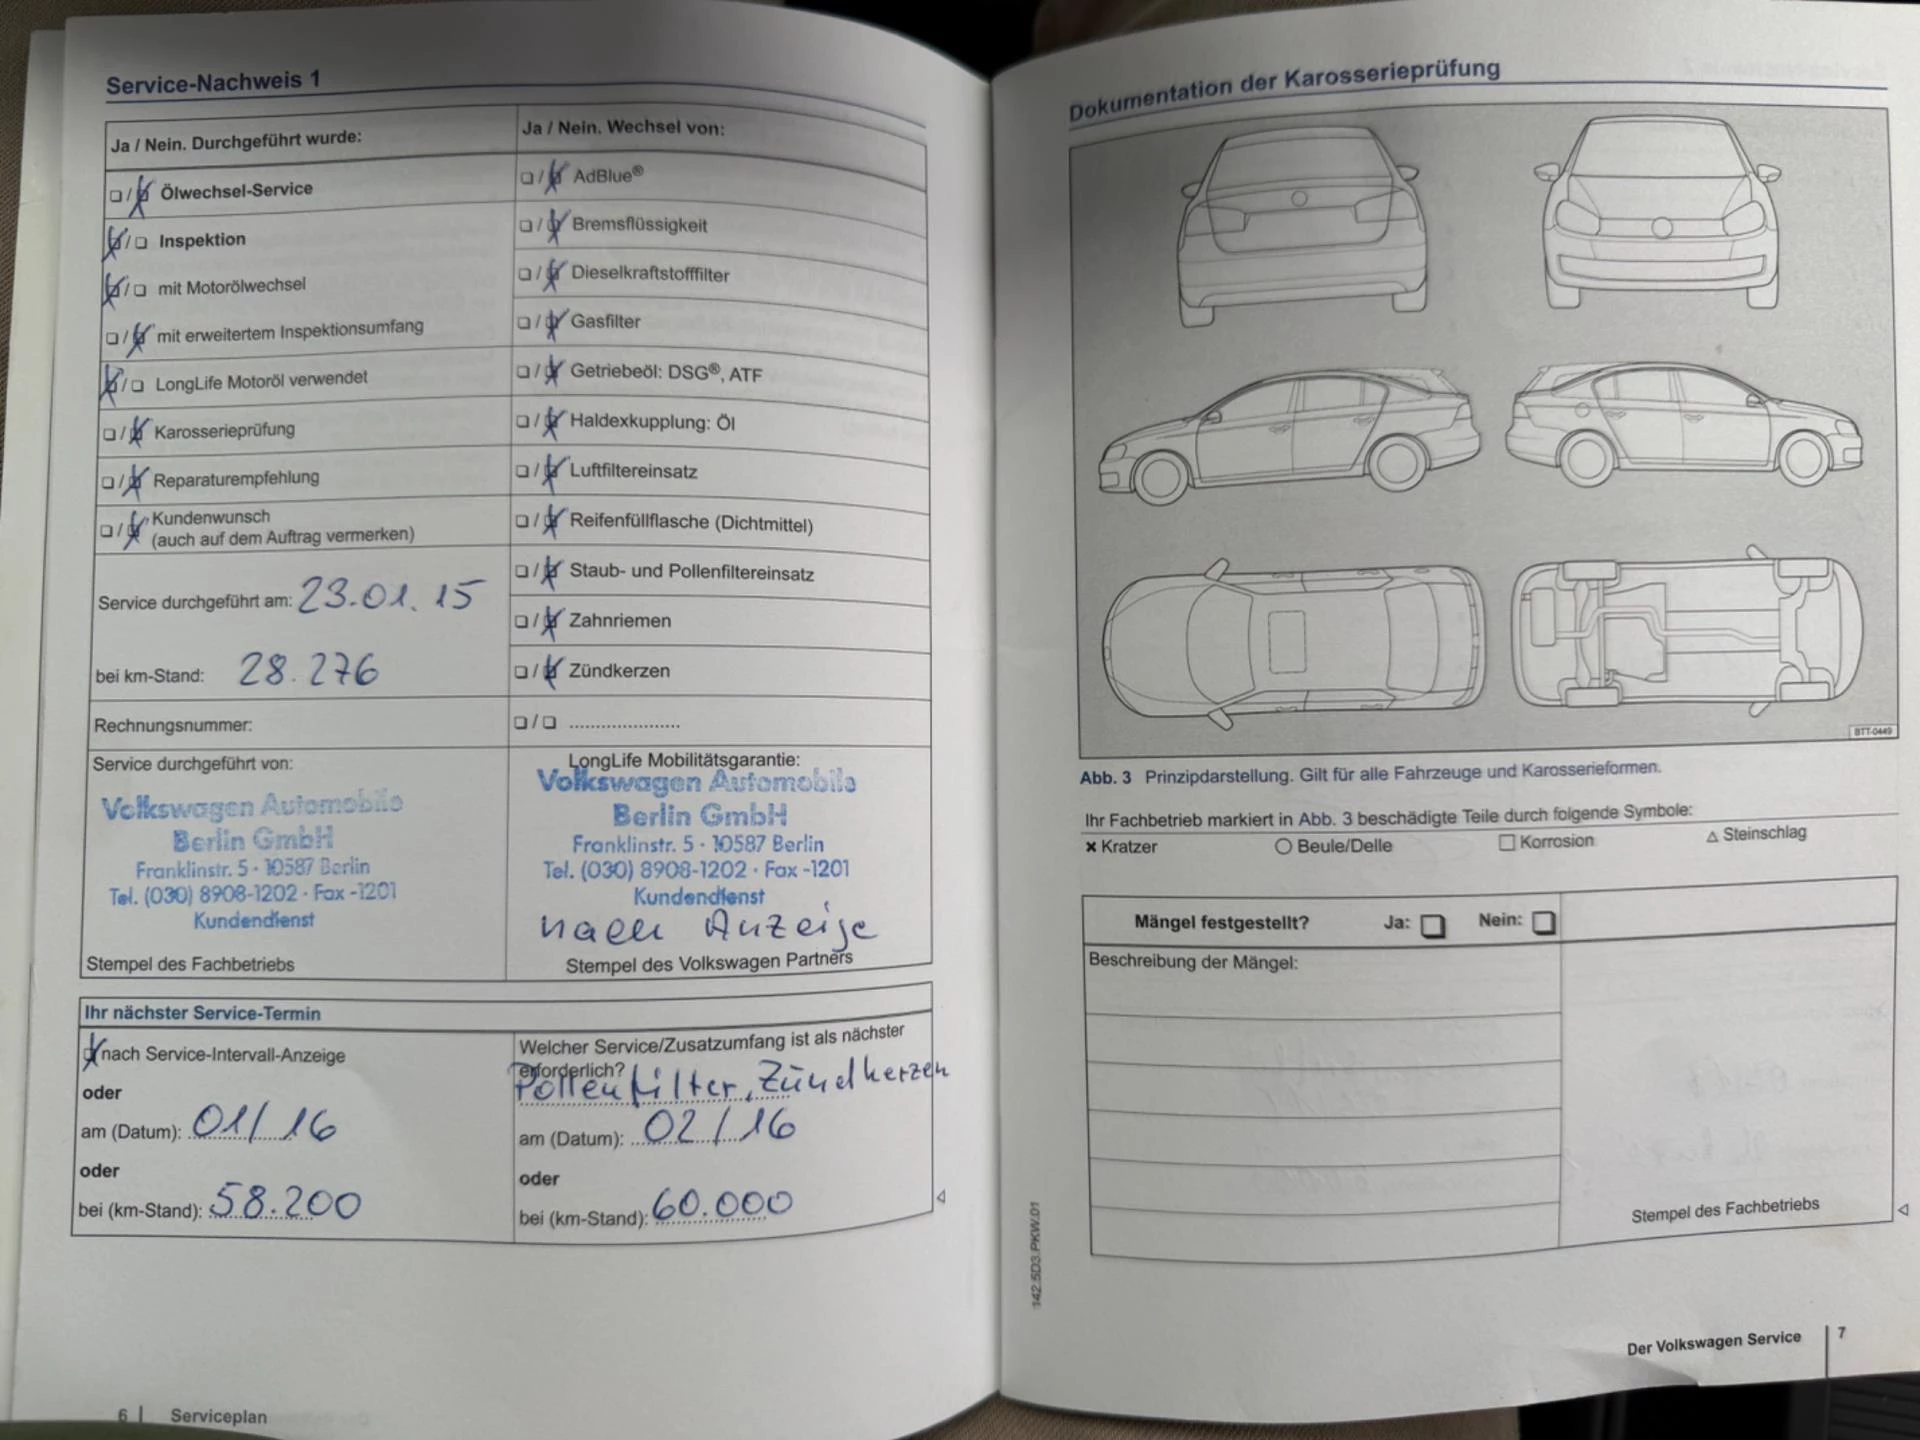 Service-Nachweis 1
Ja / Nein. Durchgeführt wurde:
❏ / ❏ Ölwechsel-Service
❏ / ❏ Inspektion
❏ / ❏ mit Motorölwechsel
❏ / ❏ mit erweitertem Inspektionsumfang
❏ / ❏ LongLife Motoröl verwendet
❏ / ❏ Karosserieprüfung
❏ / ❏ Reparaturempfehlung
❏ / ❏ Kundenwunsch
(auch auf dem Auftrag vermerken)
Service durchgeführt am: 23.01.15
bei km-Stand: 28.276
Rechnungsnummer:
Service durchgeführt von:
Volkswagen Automobile
Berlin GmbH
Franklinstr. 5 · 10587 Berlin
Tel. (030) 8908-1202 · Fax -1201
Kundendienst
Stempel des Fachbetriebs
Ja / Nein. Wechsel von:
❏ / ❏ AdBlue®
❏ / ❏ Bremsflüssigkeit
❏ / ❏ Dieselkraftstofffilter
❏ / ❏ Gasfilter
❏ / ❏ Getriebeöl: DSG®, ATF
❏ / ❏ Haldexkupplung: Öl
❏ / ❏ Luftfiltereinsatz
❏ / ❏ Reifenfüllflasche (Dichtmittel)
❏ / ❏ Staub- und Pollenfiltereinsatz
❏ / ❏ Zahnriemen
❏ / ❏ Zündkerzen
❏ / ❏ .....................
LongLife Mobilitätsgarantie:
Volkswagen Automobile
Berlin GmbH
Franklinstr. 5 · 10587 Berlin
Tel. (030) 8908-1202 · Fax -1201
Kundendienst
nach Anzeige
Stempel des Volkswagen Partners
Ihr nächster Service-Termin
❏ nach Service-Intervall-Anzeige
oder
am (Datum): 01/16
oder
bei (km-Stand): 58.200
Welcher Service/Zusatzumfang ist als nächster
erforderlich?
Pollenfilter, Zündkerzen
am (Datum): 02/16
oder
bei (km-Stand): 60.000
6 | Serviceplan
Dokumentation der Karosserieprüfung
BTT-0449
Abb. 3 Prinzipdarstellung. Gilt für alle Fahrzeuge und Karosserieformen.
Ihr Fachbetrieb markiert in Abb. 3 beschädigte Teile durch folgende Symbole:
× Kratzer ○ Beule/Delle □ Korrosion △ Steinschlag
Mängel festgestellt? Ja: ❏ Nein: ❏
Beschreibung der Mängel:
Stempel des Fachbetriebs
142.5D3.PKW.01
Der Volkswagen Service | 7